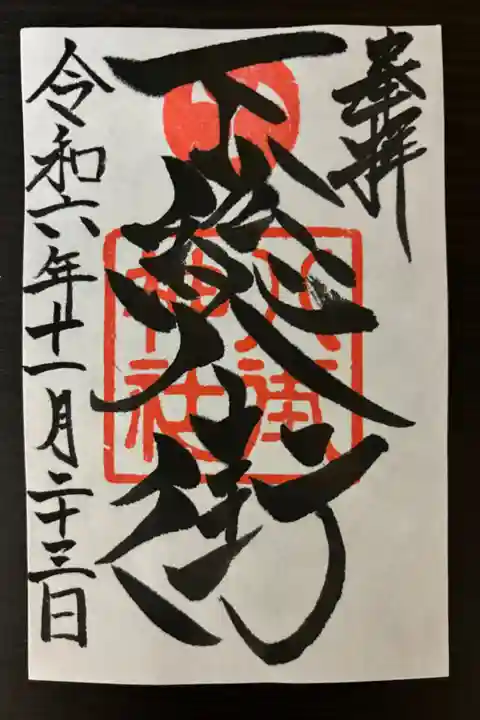 奉拝
下総八街
八街神社
令和六年十一月二十三日